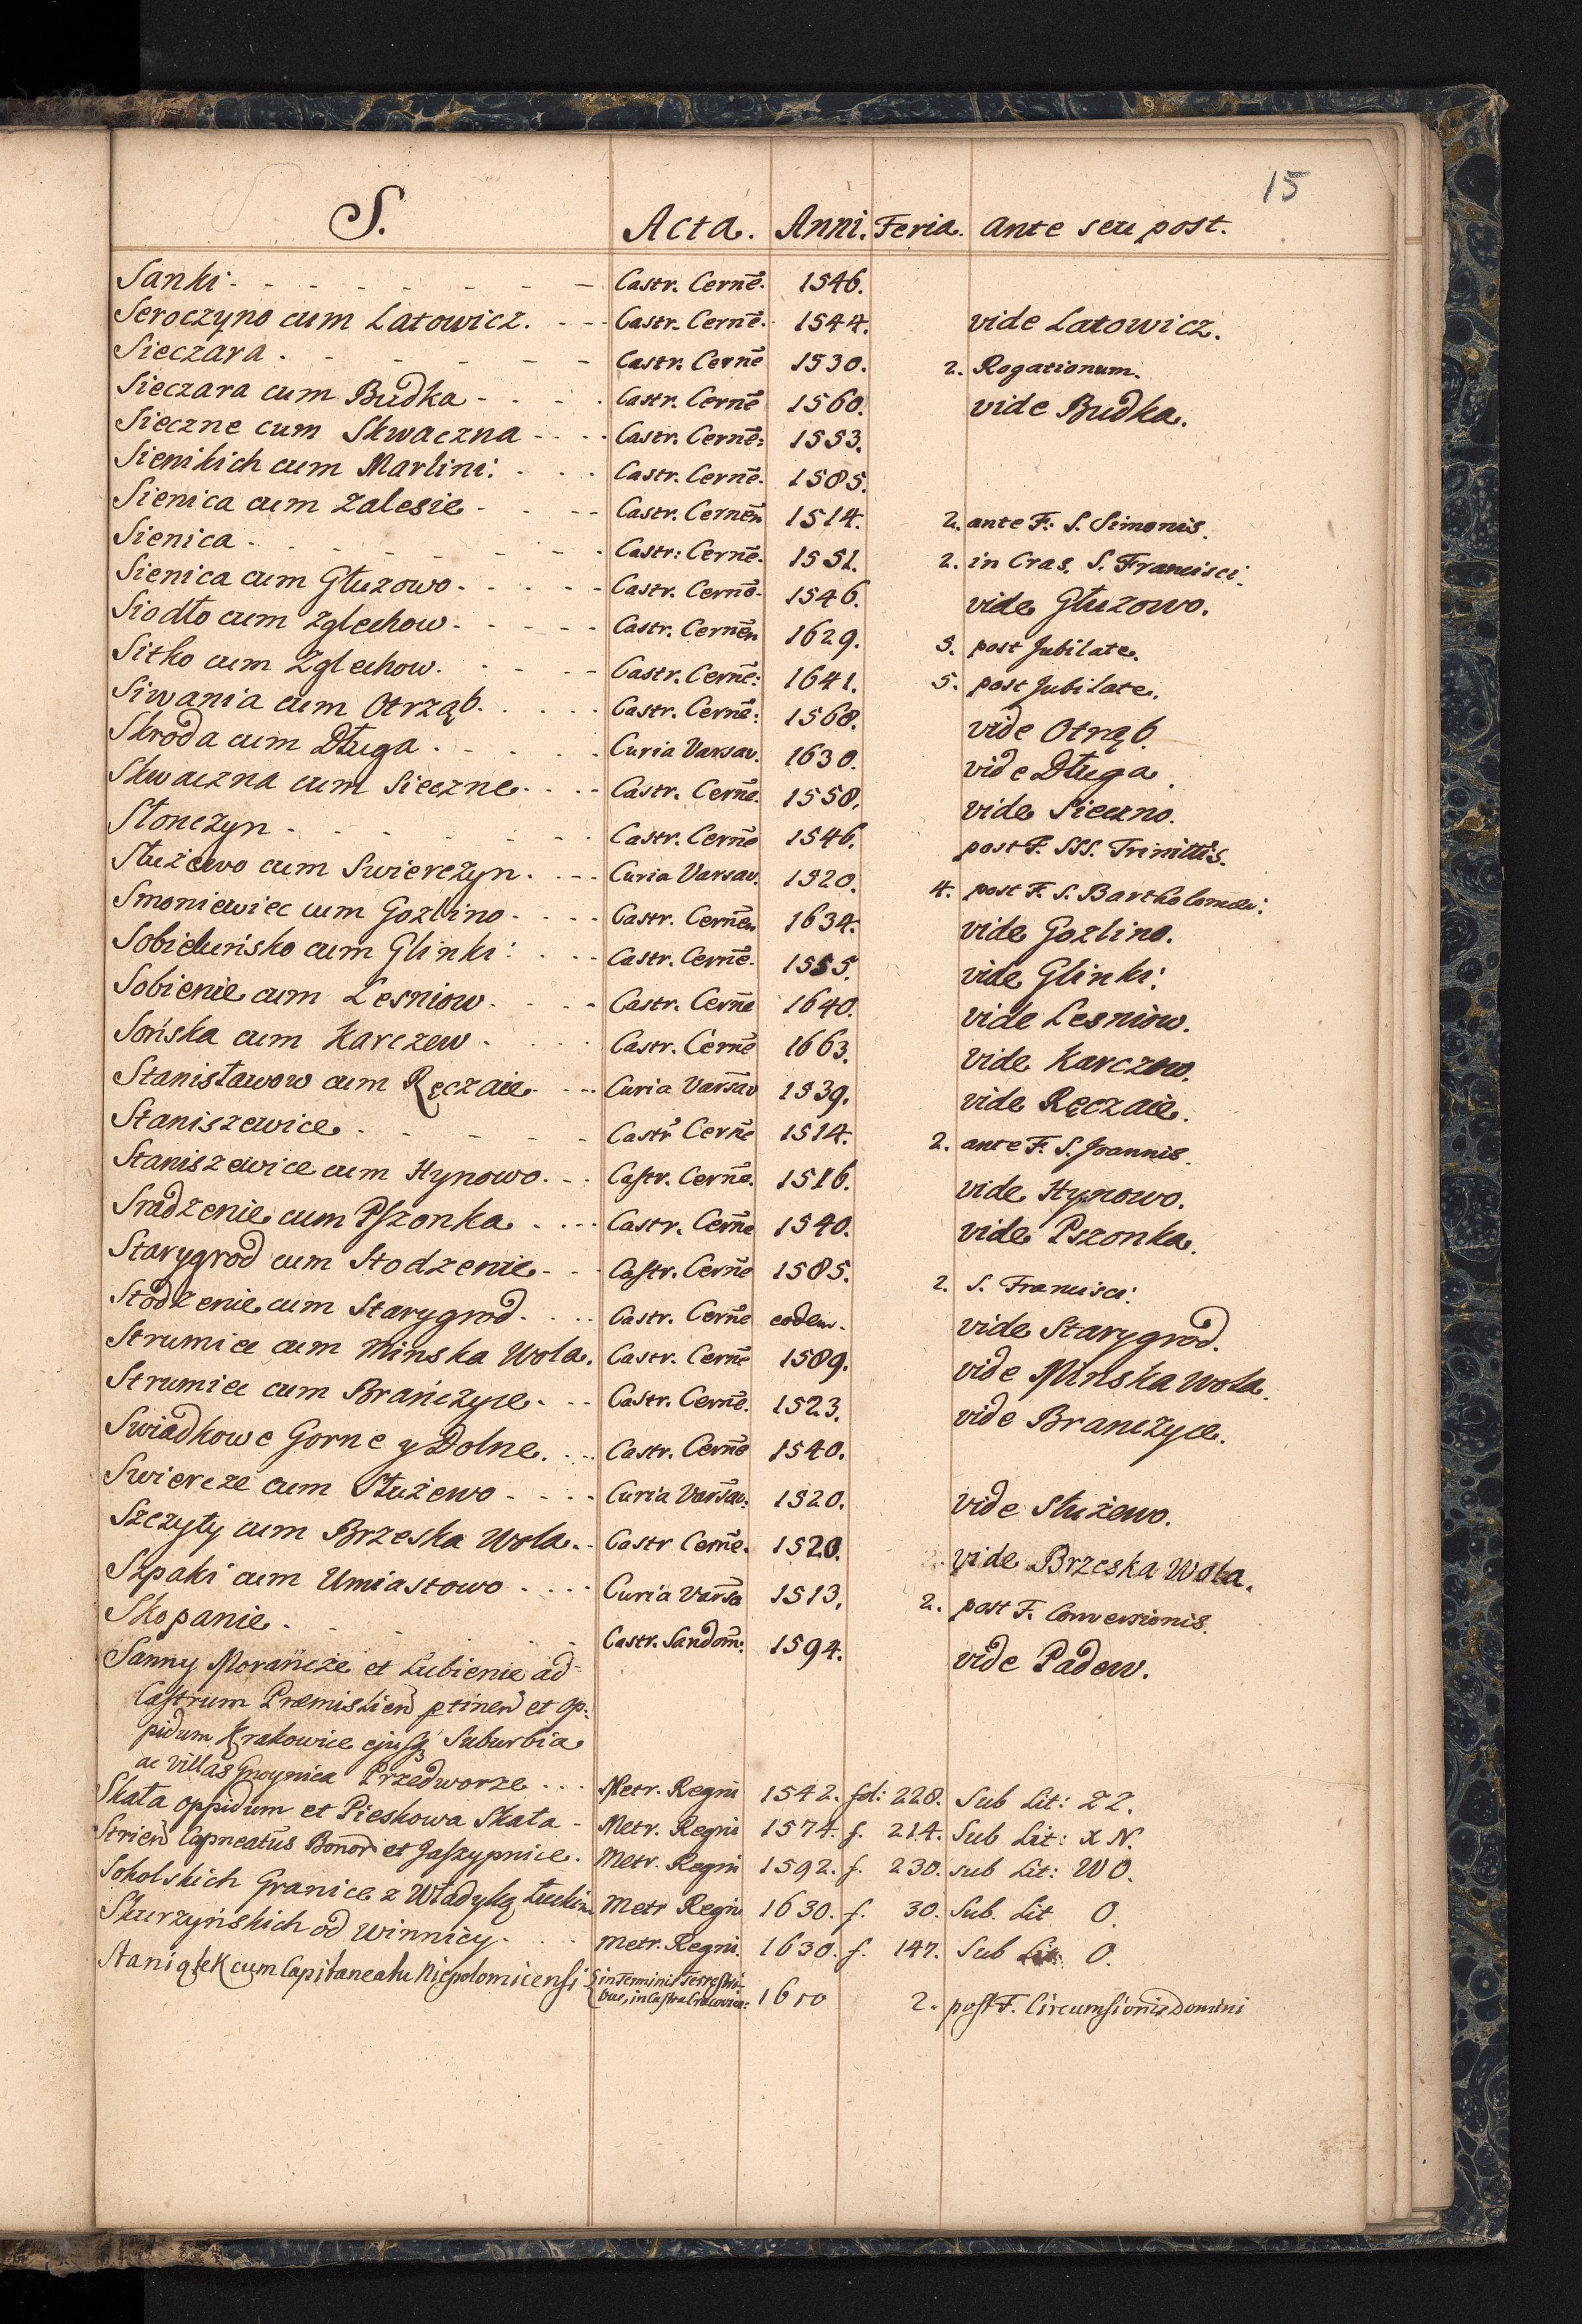 15
S. Acta. Anni. Feria. ante seu post.
Sanki Castr. Cernē. 1546.
Seroczyno cum Latowicz. Castr. Cernē. 1544. vide Latowicz.
Sieczara Castr. Cernē 1530. 2. Rogationum.
Sieczara cum Budka Castr. Cernē 1560. vide Budka.
Sieczne cum Skwaczna Castr. Cernē: 1553.
Sienikich cum Marlini: Castr. Cernē. 1585.
Sienica cum Zalesie Castr. Cernēn 1514. 2. ante F. S. Simonis.
Sienica Castr: Cernē. 1551. 2. in Cras. S. Francisci.
Sienica cum Głuzowo Castr. Cernē. 1546. vide Głuzowo.
Siodło cum Zglechow Castr. Cernēn 1629. 5. post Jubilate.
Sitko cum Zglechow. Castr. Cernē: 1641. 5. post Jubilate.
Siwania cum Otrząb. Castr. Cernē: 1568. vide Otrząb.
Skroda cum Długa. Curia Varsav. 1630. vide Długa.
Skwaczna cum Sieczne Castr. Cernē. 1558. vide Sieczno.
Słonczyn Castr. Cernē 1546. post F. SSS. Trinittis.
Służewo cum Swierczyn. Curia Varsav. 1520. 4. post F. S. Bartholomæi:
Smoniewiec cum Gozlino Castr. Cernēn 1634. vide Gozlino.
Sobiekursko cum Glinki: Castr. Cernē. 1555. vide Glinki:
Sobienie cum Lesniow. Castr. Cernē 1640. vide Lesniow.
Sońska cum Karczew Castr. Cernē 1663. vide Karczew.
Stanisławow cum Ręczaie Curia Varsav 1539. vide Ręczaie.
Staniszewice Castr Cernē 1514. 2. ante F. S. Joannis.
Staniszewice cum Hynowo. Castr. Cernē. 1516. vide Hynowo.
Sradzenie cum Pszonka Castr. Cernē 1540. vide Pszonka.
Starygrod cum Stodzenie Castr. Cernē 1585. 2. S. Francisci:
Stodzenie cum Starygrod. Castr. Cernē eodem. vide Starygrod.
Strumiec cum Minska Wola. Castr. Cernē 1589. vide Minska Wola.
Strumiec cum Brańczyce Castr. Cernē. 1523. vide Branczyce.
Swiadkowe Gorne y Dolne. Castr. Cernē 1540.
Swiercze cum Służewo Curia Varsav: 1520. vide Służewo.
Szczyty cum Brzeska Wola Castr Cernē. 1520. vide Brzeska Wola.
Szpaki cum Umiastowo Curia Varsa 1513. 2. post F. Conversionis.
Skopanie. Castr. Sandom: 1594. vide Padew.
Sanny Morańcze et Lubienie ad
Castrum Præmislien ptinen et op:
pidum Krakowice ejusq Suburbia
ac villas Gnoynica Przedworze Metr. Regni 1542. fol: 228. Sub Lit: ZZ.
Skała oppidum et Pieskowa Skała Metr. Regni 1574. f. 214. Sub Lit: X N.
Strien Capneatus Bonor et Jaszypnice. Metr. Regni 1592. f. 230. sub Lit: WO.
Sokolskich Granice z Władyką Łuckim Metr Regni 1630. f. 30. Sub. Lit O.
Skurzyńskich od Winnicy. Metr. Regni. 1630. f. 147. Sub Lit: O.
Staniątek cum Capitaneatu Niepolomicensi in Terminis Terrestri-
bus, in Castra Cracovien: 1610 2. post F. Circumsionis Domini